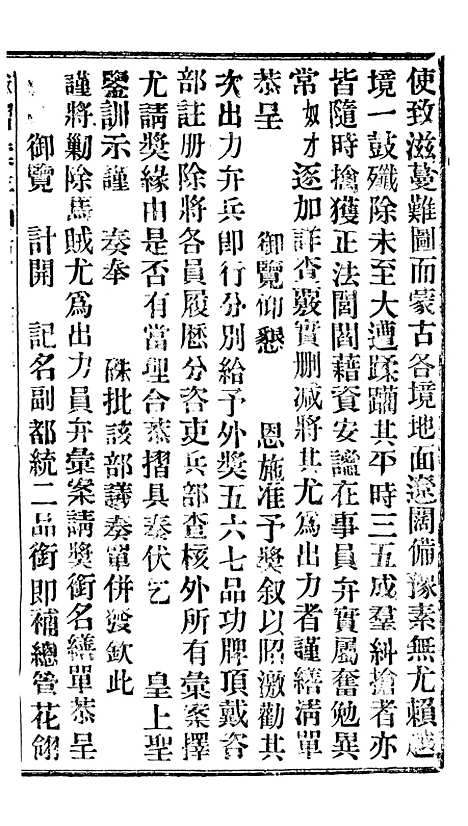 使致滋蔓難圖而蒙古各境地面遼闊備豫素無尤賴越
境一鼓殲除未至大遭蹂躪其平時三五成羣糾搶者亦
皆隨時擒獲正法閭閻藉資安謐在事員弁實屬奮勉異
常奴才逐加詳查覈實删减將其尤爲出力者謹繕淸單
恭呈　御覽仰懇　恩施准予獎叙以昭激勸其
次出力弁兵即行分別給予外獎五六七品功牌頂戴咨
部註册除將各員履歷分咨吏兵部查核外所有彙案擇
尤請獎緣由是否有當理合恭摺具奏伏乞　皇上聖
鑒訓示謹　奏奉　硃批該部議奏單併發欽此
謹將勦除馬賊尤爲出力員弁彙案請獎銜名繕單恭呈
御覽　計開　記名副都統二品銜即補總管花翎